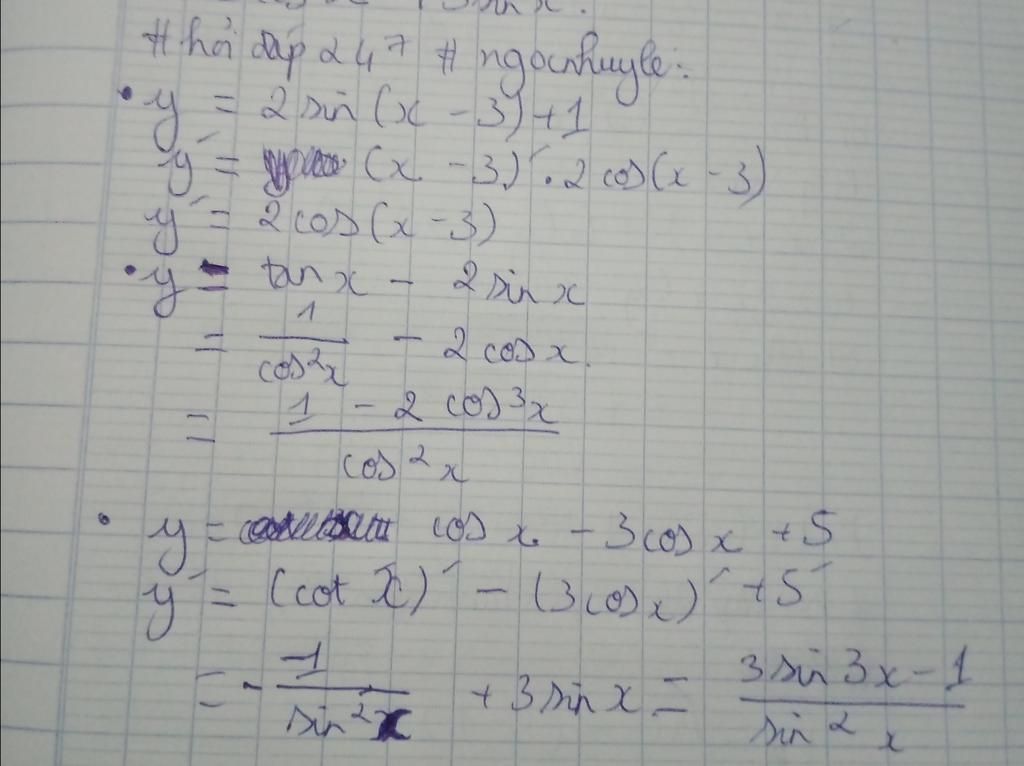 3 sin x.
# hỏi đáp 247 # ngocnhuyle:
• y = 2 sin (x - 3) + 1
y' = (x - 3)' . 2 cos (x - 3)
y' = 2 cos (x - 3)
• y = tan x - 2 sin x
= 1/cos²x - 2 cos x.
= (1 - 2 cos³x)/cos²x
• y = cos x - 3 cos x + 5
y' = (cot x)' - (3 cos x)' + 5'
= - -1/sin²x + 3 sin x = (3 sin 3x - 1)/sin² x